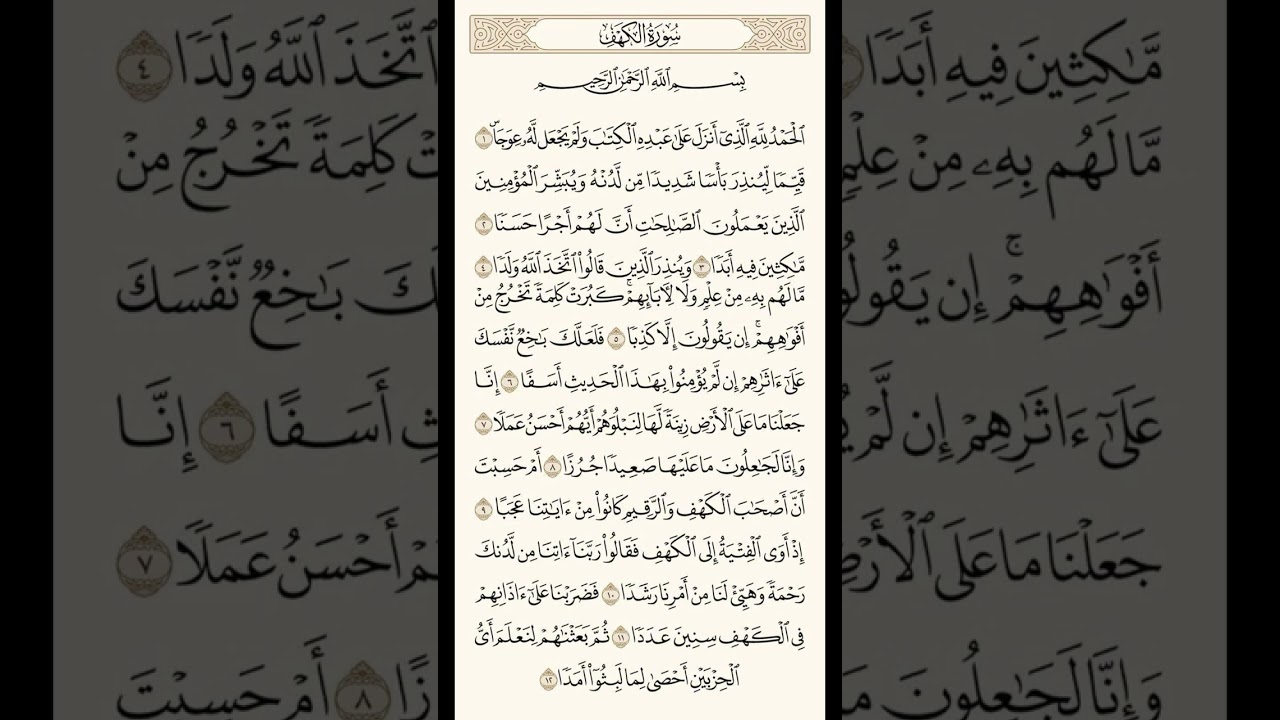 سُورَةُ الكَهْفِ
بِسْمِ ٱللَّهِ ٱلرَّحْمَٰنِ ٱلرَّحِيمِ
ٱلْحَمْدُ لِلَّهِ ٱلَّذِىٓ أَنزَلَ عَلَىٰ عَبْدِهِ ٱلْكِتَٰبَ وَلَمْ يَجْعَل لَّهُۥ عِوَجَاۜ ١
قَيِّمًا لِّيُنذِرَ بَأْسًا شَدِيدًا مِّن لَّدُنْهُ وَيُبَشِّرَ ٱلْمُؤْمِنِينَ
ٱلَّذِينَ يَعْمَلُونَ ٱلصَّٰلِحَٰتِ أَنَّ لَهُمْ أَجْرًا حَسَنًا ٢
مَّٰكِثِينَ فِيهِ أَبَدًا ٣ وَيُنذِرَ ٱلَّذِينَ قَالُوا۟ ٱتَّخَذَ ٱللَّهُ وَلَدًا ٤
مَّا لَهُم بِهِۦ مِنْ عِلْمٍ وَلَا لِءَابَآئِهِمْ ۚ كَبُرَتْ كَلِمَةً تَخْرُجُ مِنْ
أَفْوَٰهِهِمْ ۚ إِن يَقُولُونَ إِلَّا كَذِبًا ٥ فَلَعَلَّكَ بَٰخِعٌ نَّفْسَكَ
عَلَىٰٓ ءَاثَٰرِهِمْ إِن لَّمْ يُؤْمِنُوا۟ بِهَٰذَا ٱلْحَدِيثِ أَسَفًا ٦ إِنَّا
جَعَلْنَا مَا عَلَى ٱلْأَرْضِ زِينَةً لَّهَا لِنَبْلُوَهُمْ أَيُّهُمْ أَحْسَنُ عَمَلًا ٧
وَإِنَّا لَجَٰعِلُونَ مَا عَلَيْهَا صَعِيدًا جُرُزًا ٨ أَمْ حَسِبْتَ
أَنَّ أَصْحَٰبَ ٱلْكَهْفِ وَٱلرَّقِيمِ كَانُوا۟ مِنْ ءَايَٰتِنَا عَجَبًا ٩
إِذْ أَوَى ٱلْفِتْيَةُ إِلَى ٱلْكَهْفِ فَقَالُوا۟ رَبَّنَآ ءَاتِنَا مِن لَّدُنكَ
رَحْمَةً وَهَيِّئْ لَنَا مِنْ أَمْرِنَا رَشَدًا ١٠ فَضَرَبْنَا عَلَىٰٓ ءَاذَانِهِمْ
فِى ٱلْكَهْفِ سِنِينَ عَدَدًا ١١ ثُمَّ بَعَثْنَٰهُمْ لِنَعْلَمَ أَىُّ
ٱلْحِزْبَيْنِ أَحْصَىٰ لِمَا لَبِثُوٓا۟ أَمَدًا ١٢